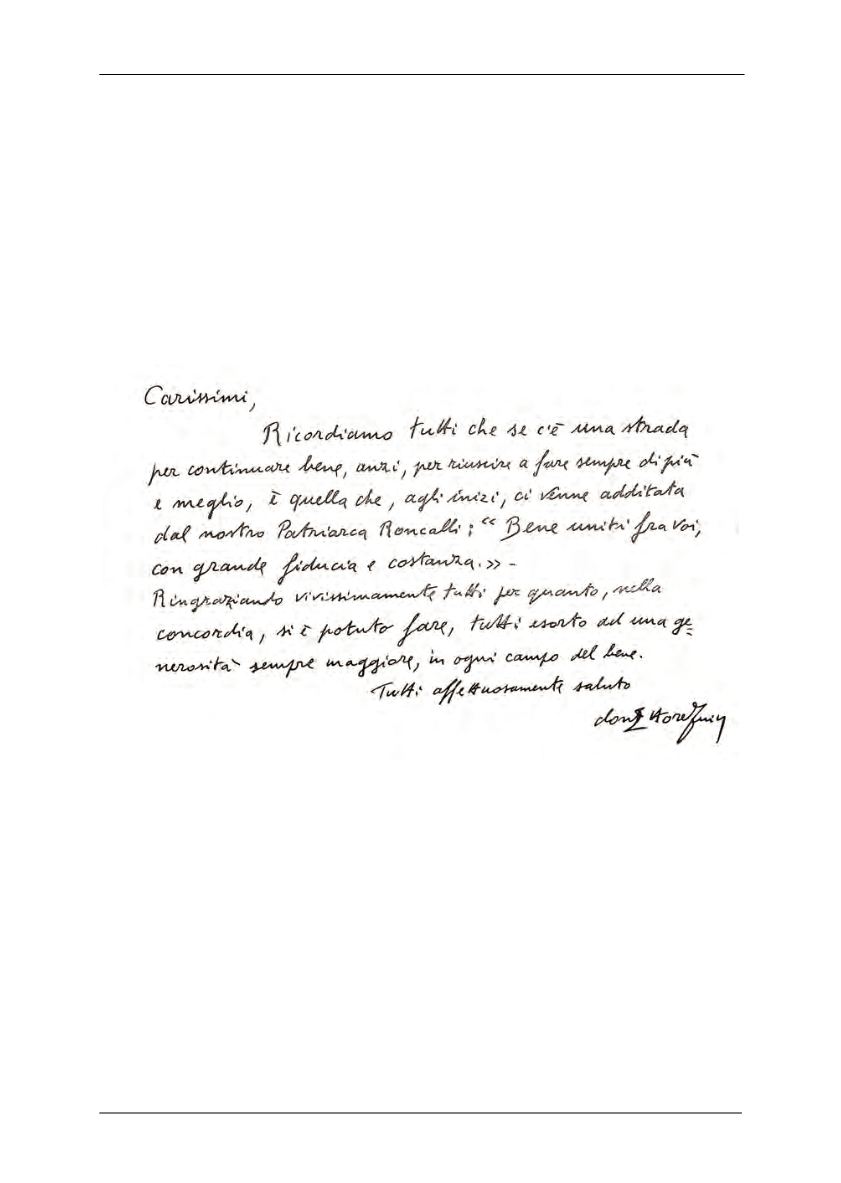 Carissimi,
Ricordiamo tutti che se c'è una strada
per continuare bene, anzi, per riuscire a fare sempre di più
e meglio, è quella che, agli inizi, ci venne additata
dal nostro Patriarca Roncalli: “ Bene uniti fra voi,
con grande fiducia e costanza.» -
Ringraziando vivissimamente tutti per quanto, nella
concordia, si è potuto fare, tutti esorto ad una ge=
nerosità sempre maggiore, in ogni campo del bene.
Tutti affettuosamente saluto
don Ettore